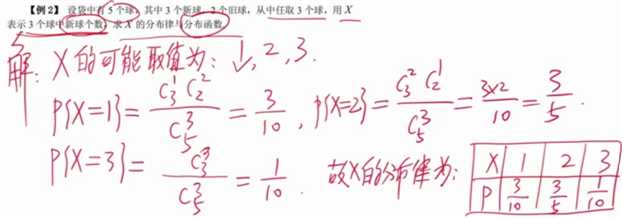 【例2】 设袋中有 5 个球，其中 3 个新球，2 个旧球，从中任取 3 个球，用 X
表示 3 个球中新球个数，求 X 的分布律与分布函数.
解: X 的可能取值为: 1, 2, 3.
P{X=1} = C_3^1 C_2^2 / C_5^3 = 3/10, P{X=2} = C_3^2 C_2^1 / C_5^3 = 3×2/10 = 3/5.
P{X=3} = C_3^3 / C_5^3 = 1/10. 故X的分布律为: X 1 2 3
P 3/10 3/5 1/10